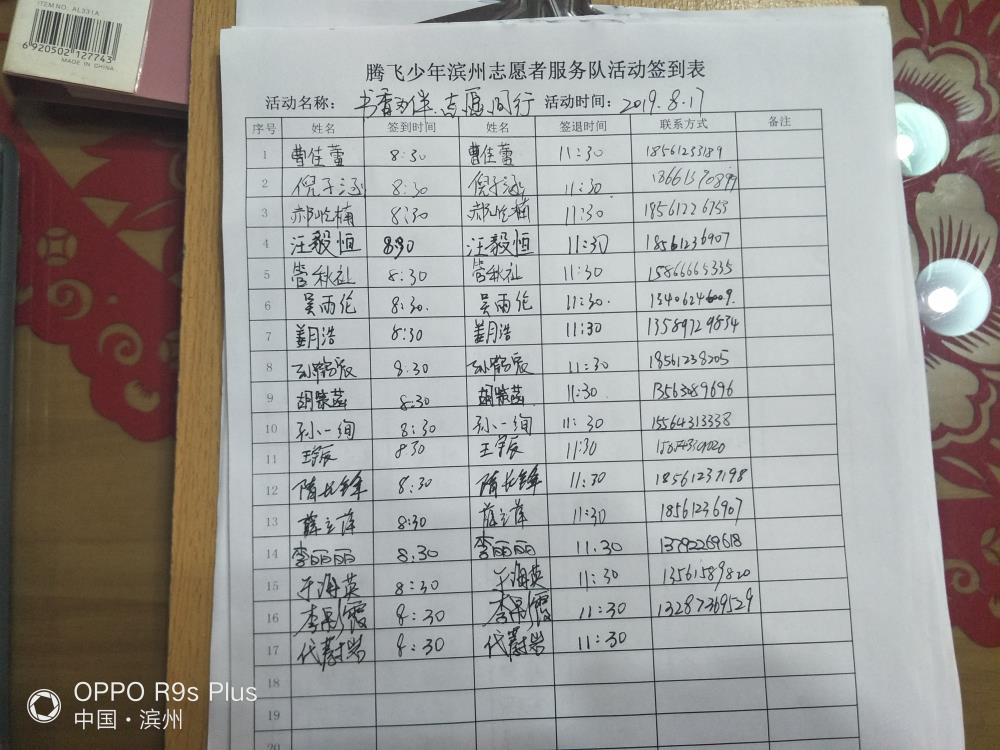 ITEM NO. AL331A
6920502127743
MADE IN CHINA
腾飞少年滨州志愿者服务队活动签到表
活动名称： 书香为伴、志愿同行 活动时间： 2019.8.17
序号 姓名 签到时间 姓名 签退时间 联系方式 备注
1 曹佳蕾 8:30 曹佳蕾 11:30 18561253189
2 倪子涵 8:30 倪子涵 11:30 18661370899
3 8:30 11:30 18561226753
4 汪毅恒 8:30 汪毅恒 11:30 18561236907
5 管秋祉 8:30 管秋祉 11:30 15866665335
6 吴雨伦 8:30. 吴雨伦 11:30.
7 姜月浩 8:30 姜月浩 11:30 13589729834
8 8:30 11:30 18561238205
9 胡紫菡 8:30 胡紫菡 11:30 13563089696
10 孙一绚 8:30 孙一绚 11:30 15564313338
11 王宇辰 8:30 王宇辰 11:30
12 隋长锋 8:30 隋长锋 11:30 18561237198
13 8:30 11:30 18561236907
14 李丽丽 8:30 李丽丽 11.30 13792269618
15 于海英 8:30 于海英 11:30 13561589820
16 8:30 11:30 13287369529
17 代蔚岩 8:30 代蔚岩 11:30
18
19
20
OPPO R9s Plus
中国·滨州